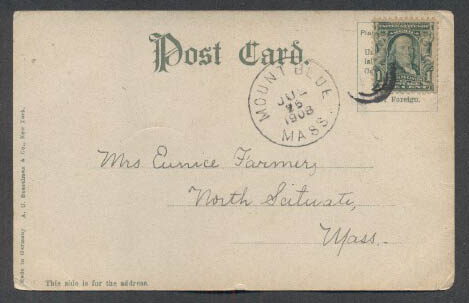 Post Card.
MOUNT BLUE
JUL
26
1908
MASS.
Foreign.
Mrs Eunice Farmer,
North Scituate,
Mass.
Made in Germany A. U. Bosselman & Co., New York.
This side is for the address.